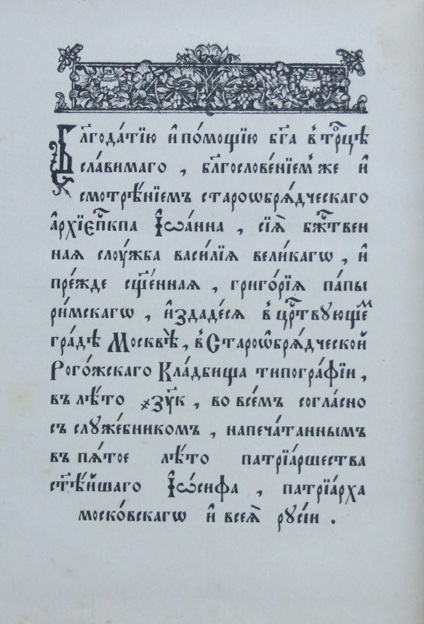 Бл҃года́тїю и҆ по́мощїю бг҃а в̾ трⷪ҇цѣ
сла́вимаго , бл҃гослове́нїем̾ же и҆
смотре́нїемъ староѡбря́дческаго
а҆рхїепⷭ҇кпа І҆ѡа́нна , сїѧ̀ бж҃твен
ная слоу́жба васи́лїя вели́кагѡ , и҆
пре́жде сщ҃е́нная , григо́рїя па́пы
ри́мскагѡ , и҆здаде́ся в̾ црⷭ҇твующеⷨ
гра́дѣ Москвѣ̀ , в̾ Староѡбря́дческой
Рого́жскаго Кла́дбища типогра́фїи ,
въ лѣ́то ҂зу҃к , во все́мъ согласно
съ служе́бникомъ , напеча́таннымъ
въ пя́тое лѣ́то патрїа́ршества
ст҃ѣ́йшаго І҆ѡ́сифа , патрїа́рха
моско́вскагѡ и҆ всея̀ ру́сїи .